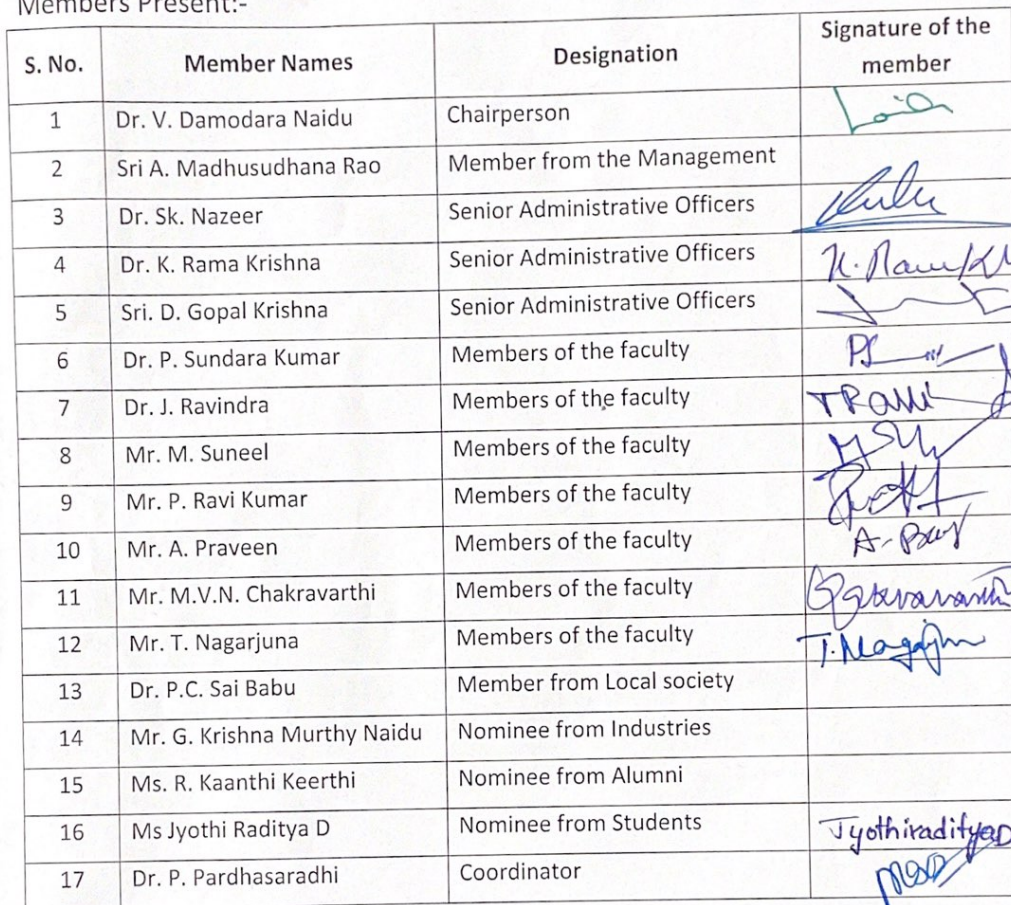 Members Present:-
S. No. Member Names Designation Signature of the member
1 Dr. V. Damodara Naidu Chairperson
2 Sri A. Madhusudhana Rao Member from the Management
3 Dr. Sk. Nazeer Senior Administrative Officers
4 Dr. K. Rama Krishna Senior Administrative Officers
5 Sri. D. Gopal Krishna Senior Administrative Officers
6 Dr. P. Sundara Kumar Members of the faculty
7 Dr. J. Ravindra Members of the faculty
8 Mr. M. Suneel Members of the faculty
9 Mr. P. Ravi Kumar Members of the faculty
10 Mr. A. Praveen Members of the faculty
11 Mr. M.V.N. Chakravarthi Members of the faculty
12 Mr. T. Nagarjuna Members of the faculty
13 Dr. P.C. Sai Babu Member from Local society
14 Mr. G. Krishna Murthy Naidu Nominee from Industries
15 Ms. R. Kaanthi Keerthi Nominee from Alumni
16 Ms Jyothi Raditya D Nominee from Students JyothiradityaD
17 Dr. P. Pardhasaradhi Coordinator